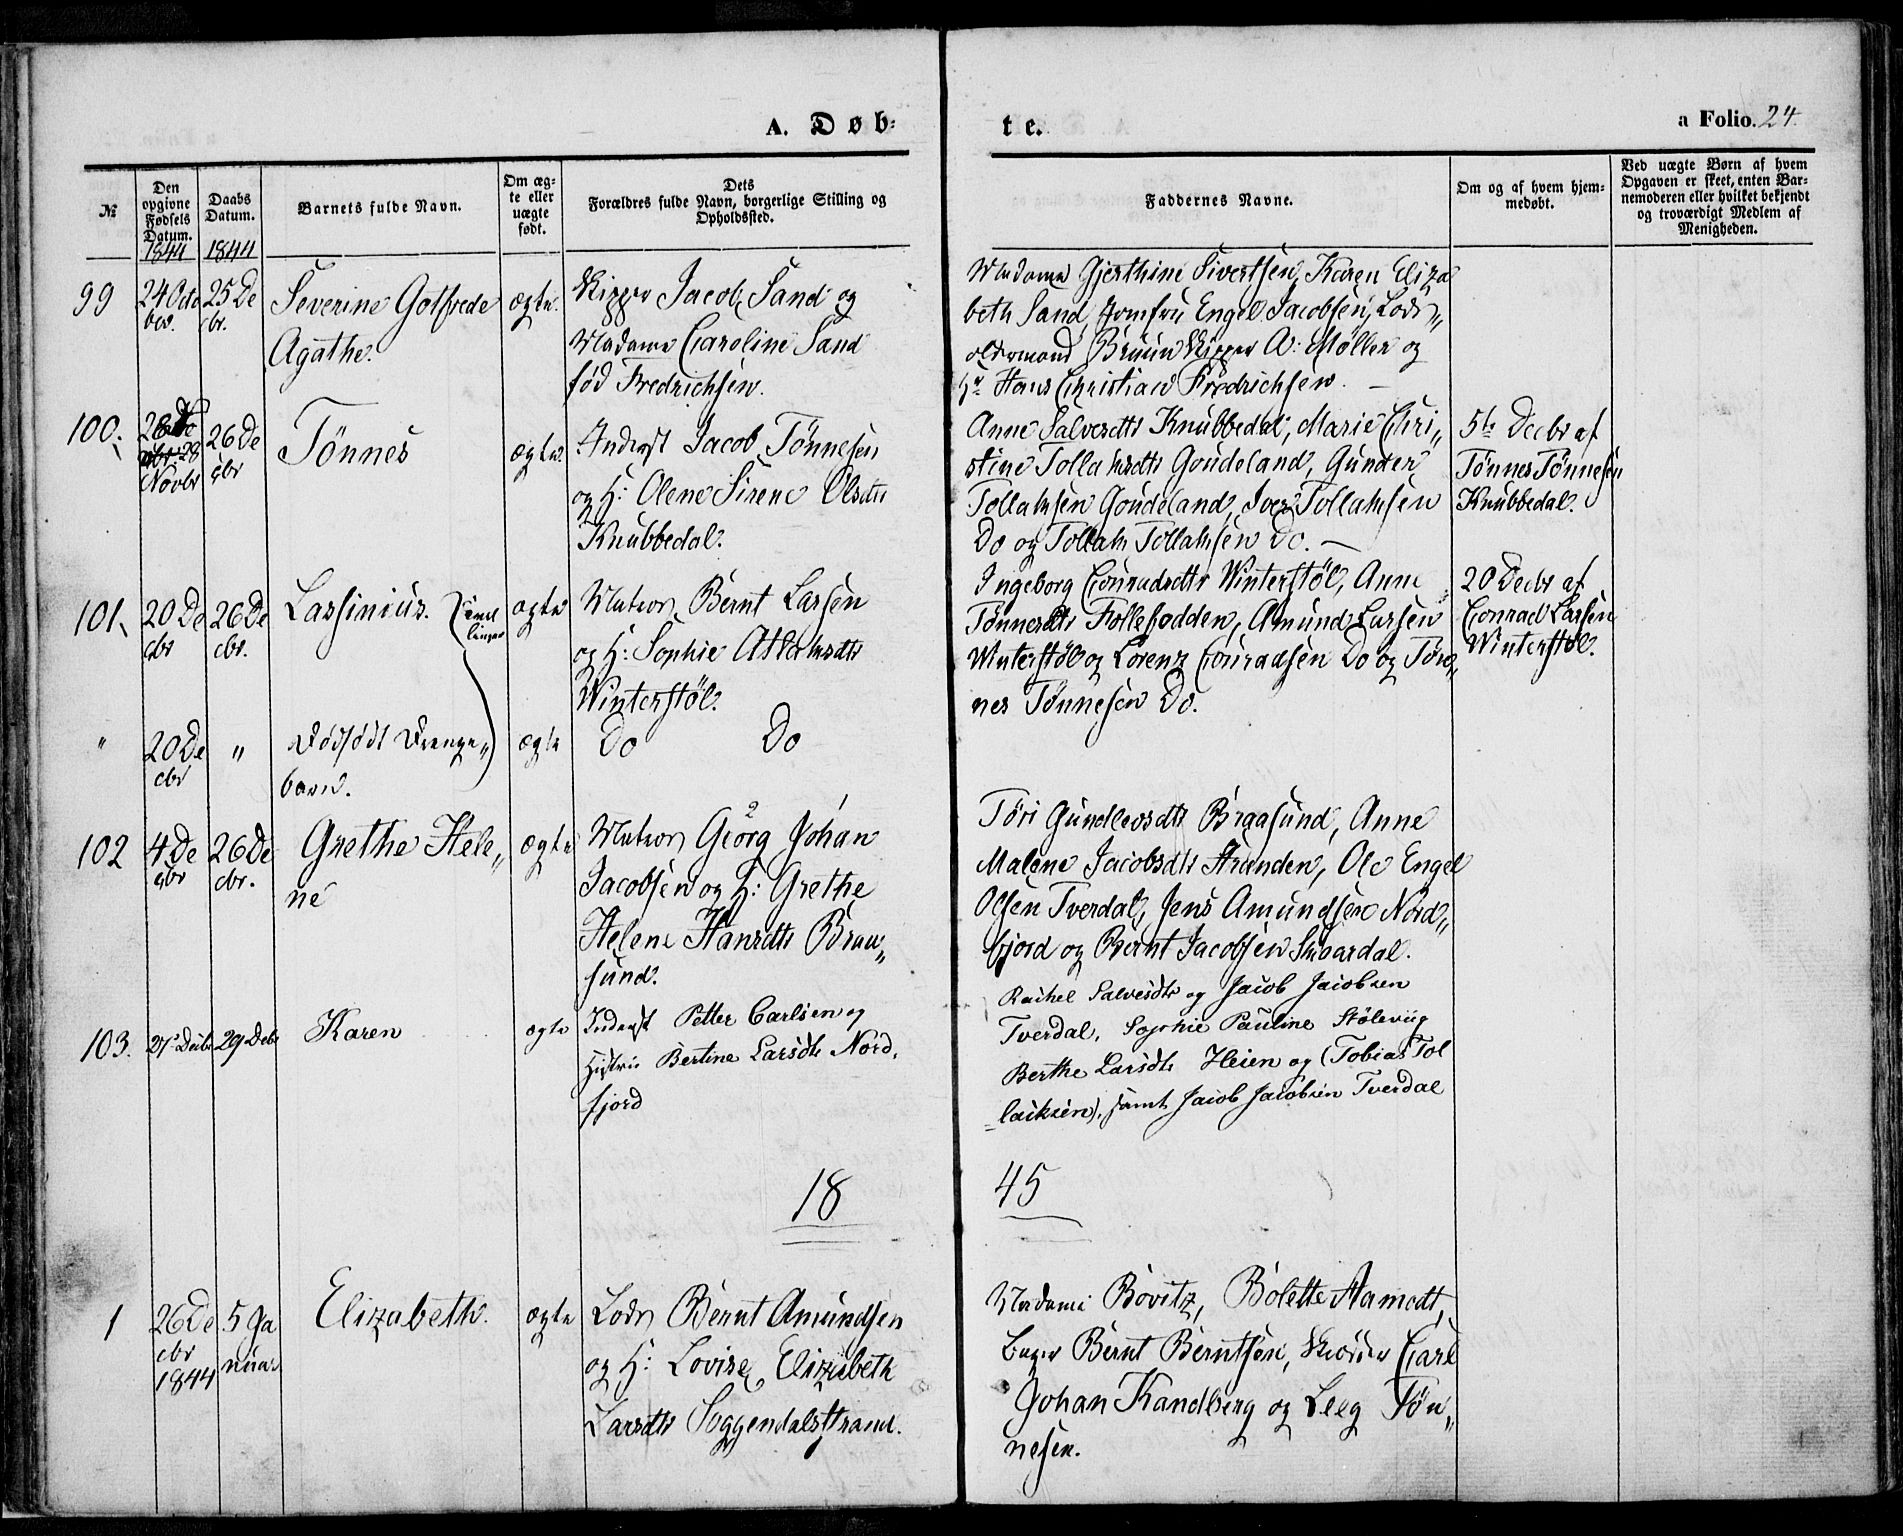 A. Døb-
te.
a Folio. 24.
№
Den opgivne Fødsels Datum.
1844
Daabs Datum.
1844
Barnets fulde Navn.
Om ægte eller uægte født.
Dets Forældres fulde Navn, borgerlige Stilling og Opholdssted.
Faddernes Navne.
Om og af hvem hjemmedøbt.
Ved uægte Børn af hvem Opgaven er skeet, enten Barnemoderen eller hvilket bekjendt og troværdigt Medlem af Menigheden.
99
24 Octo
ber.
25 De
cbr.
Severine Gotfrede
Agathe.
ægte.
Skipper Jacob Sand og
Madame Caroline Sand
fød Fredrichsen.
Madame Gjerthine Sivertsen, Karen Eliza
beth Sand, Jomfru Engel Jacobsen, Lods„
oldermand Bruun Skipper A: Møller og
Hr Hans Christian Fredrichsen. —
100.
28
Novbr
26 De
cbr
Tönnes
ægte.
Inderst Jacob Tönnesen
og H: Olene Sirene Olsdtr
Knubbedal.
Anne Salvesdtr Knubbedal, Marie Chri„
stine Tollaksdtr Goudeland, Gunder
Tollaksen Goudeland, Iver Tollaksen
Do og Tollak Tollaksen Do. —
5te Decbr af
Tönnes Tönnesen
Knubbedal.
101.
20 De
cbr
26 De
cbr.
Lassinius.
Tvil
linger
ægte
Matros Bernt Larsen
og H: Sophie Aslaksdtr
Winterstöl.
Ingeborg Conradsdtr Winterstöl, Anne
Tönnesdtr Follesodden, Amund Larsen
Winterstöl og Lorenz Conradsen Do og Tön„
nes Tönnesen Do.
20 Decbr af
Conrad Larsen
Winterstöl.
„
20 De
cbr
„
Dödfödt Drenge„
barn.
ægte
Do Do
102
4 De
cbr
26 De
cbr.
Grethe Hele„
ne
ægte
Matros Georg Johan
Jacobsen og H: Grethe
Helene Hansdtr Braa„
sund.
Töri Gundlevsdtr Braasund, Anne
Malene Jacobsdtr Stranden, Ole Engel
Olsen Tverdal, Jens Amundsen Nord„
fjord og Bernt Jacobsen Skaardal.
103.
21 Decbr
29 Debr
Karen
ægte
Inderst Petter Carlsen og
Hustru Bertine Larsdtr Nord,
fjord
Rachel Salvesdtr og Jacob Jacobsen
Tverdal, Sophie Pauline Stöleviig
Berthe Larsdtr Heien og (Tobias Tol
laksen), samt Jacob Jacobsen Tverdal
18
45
1
26 De
cbr
1844
5 Ja
nuar
Elizabeth.
ægte
Lods Bernt Amundsen
og H: Lovise Elizabeth
Larsdtr Soggendalsstrand.
Madame Bovitz, Bolette Aamodt,
Bager Bernt Berntsen, Skræder Carl
Johan Kandberg og Leeg Tön„
nesen.